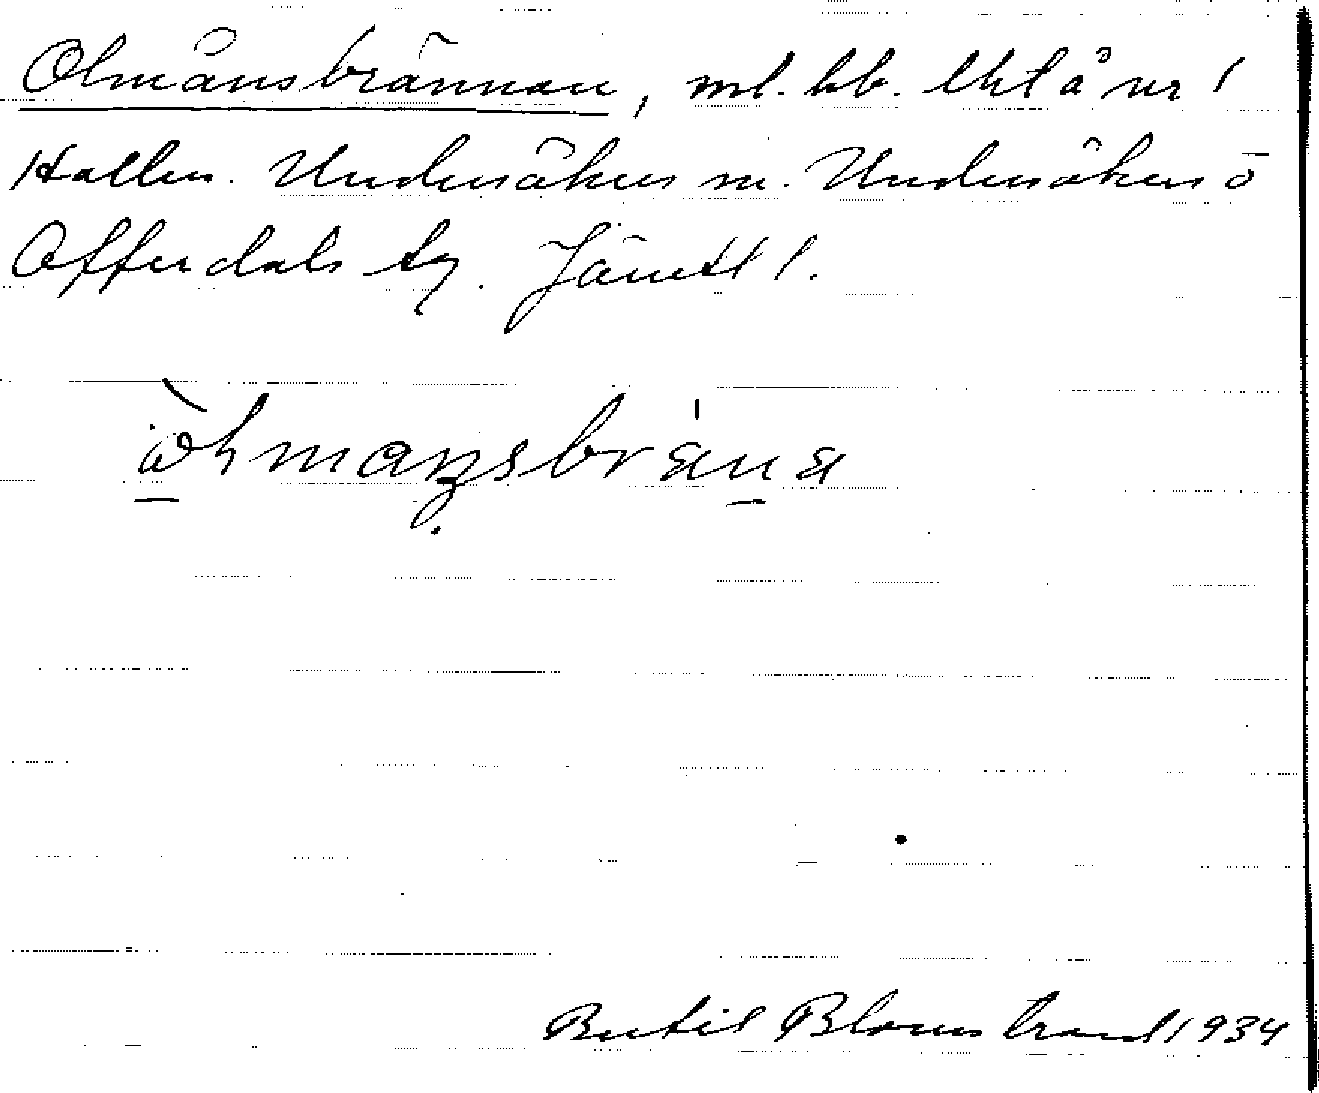 Olmånsbrännan, ml. bb. Uktå nr 1
Hallen. Undersåkers sn. Undersåkers o
Offerdals tg. Jämtl l.
Bertil Blomstrand 1934